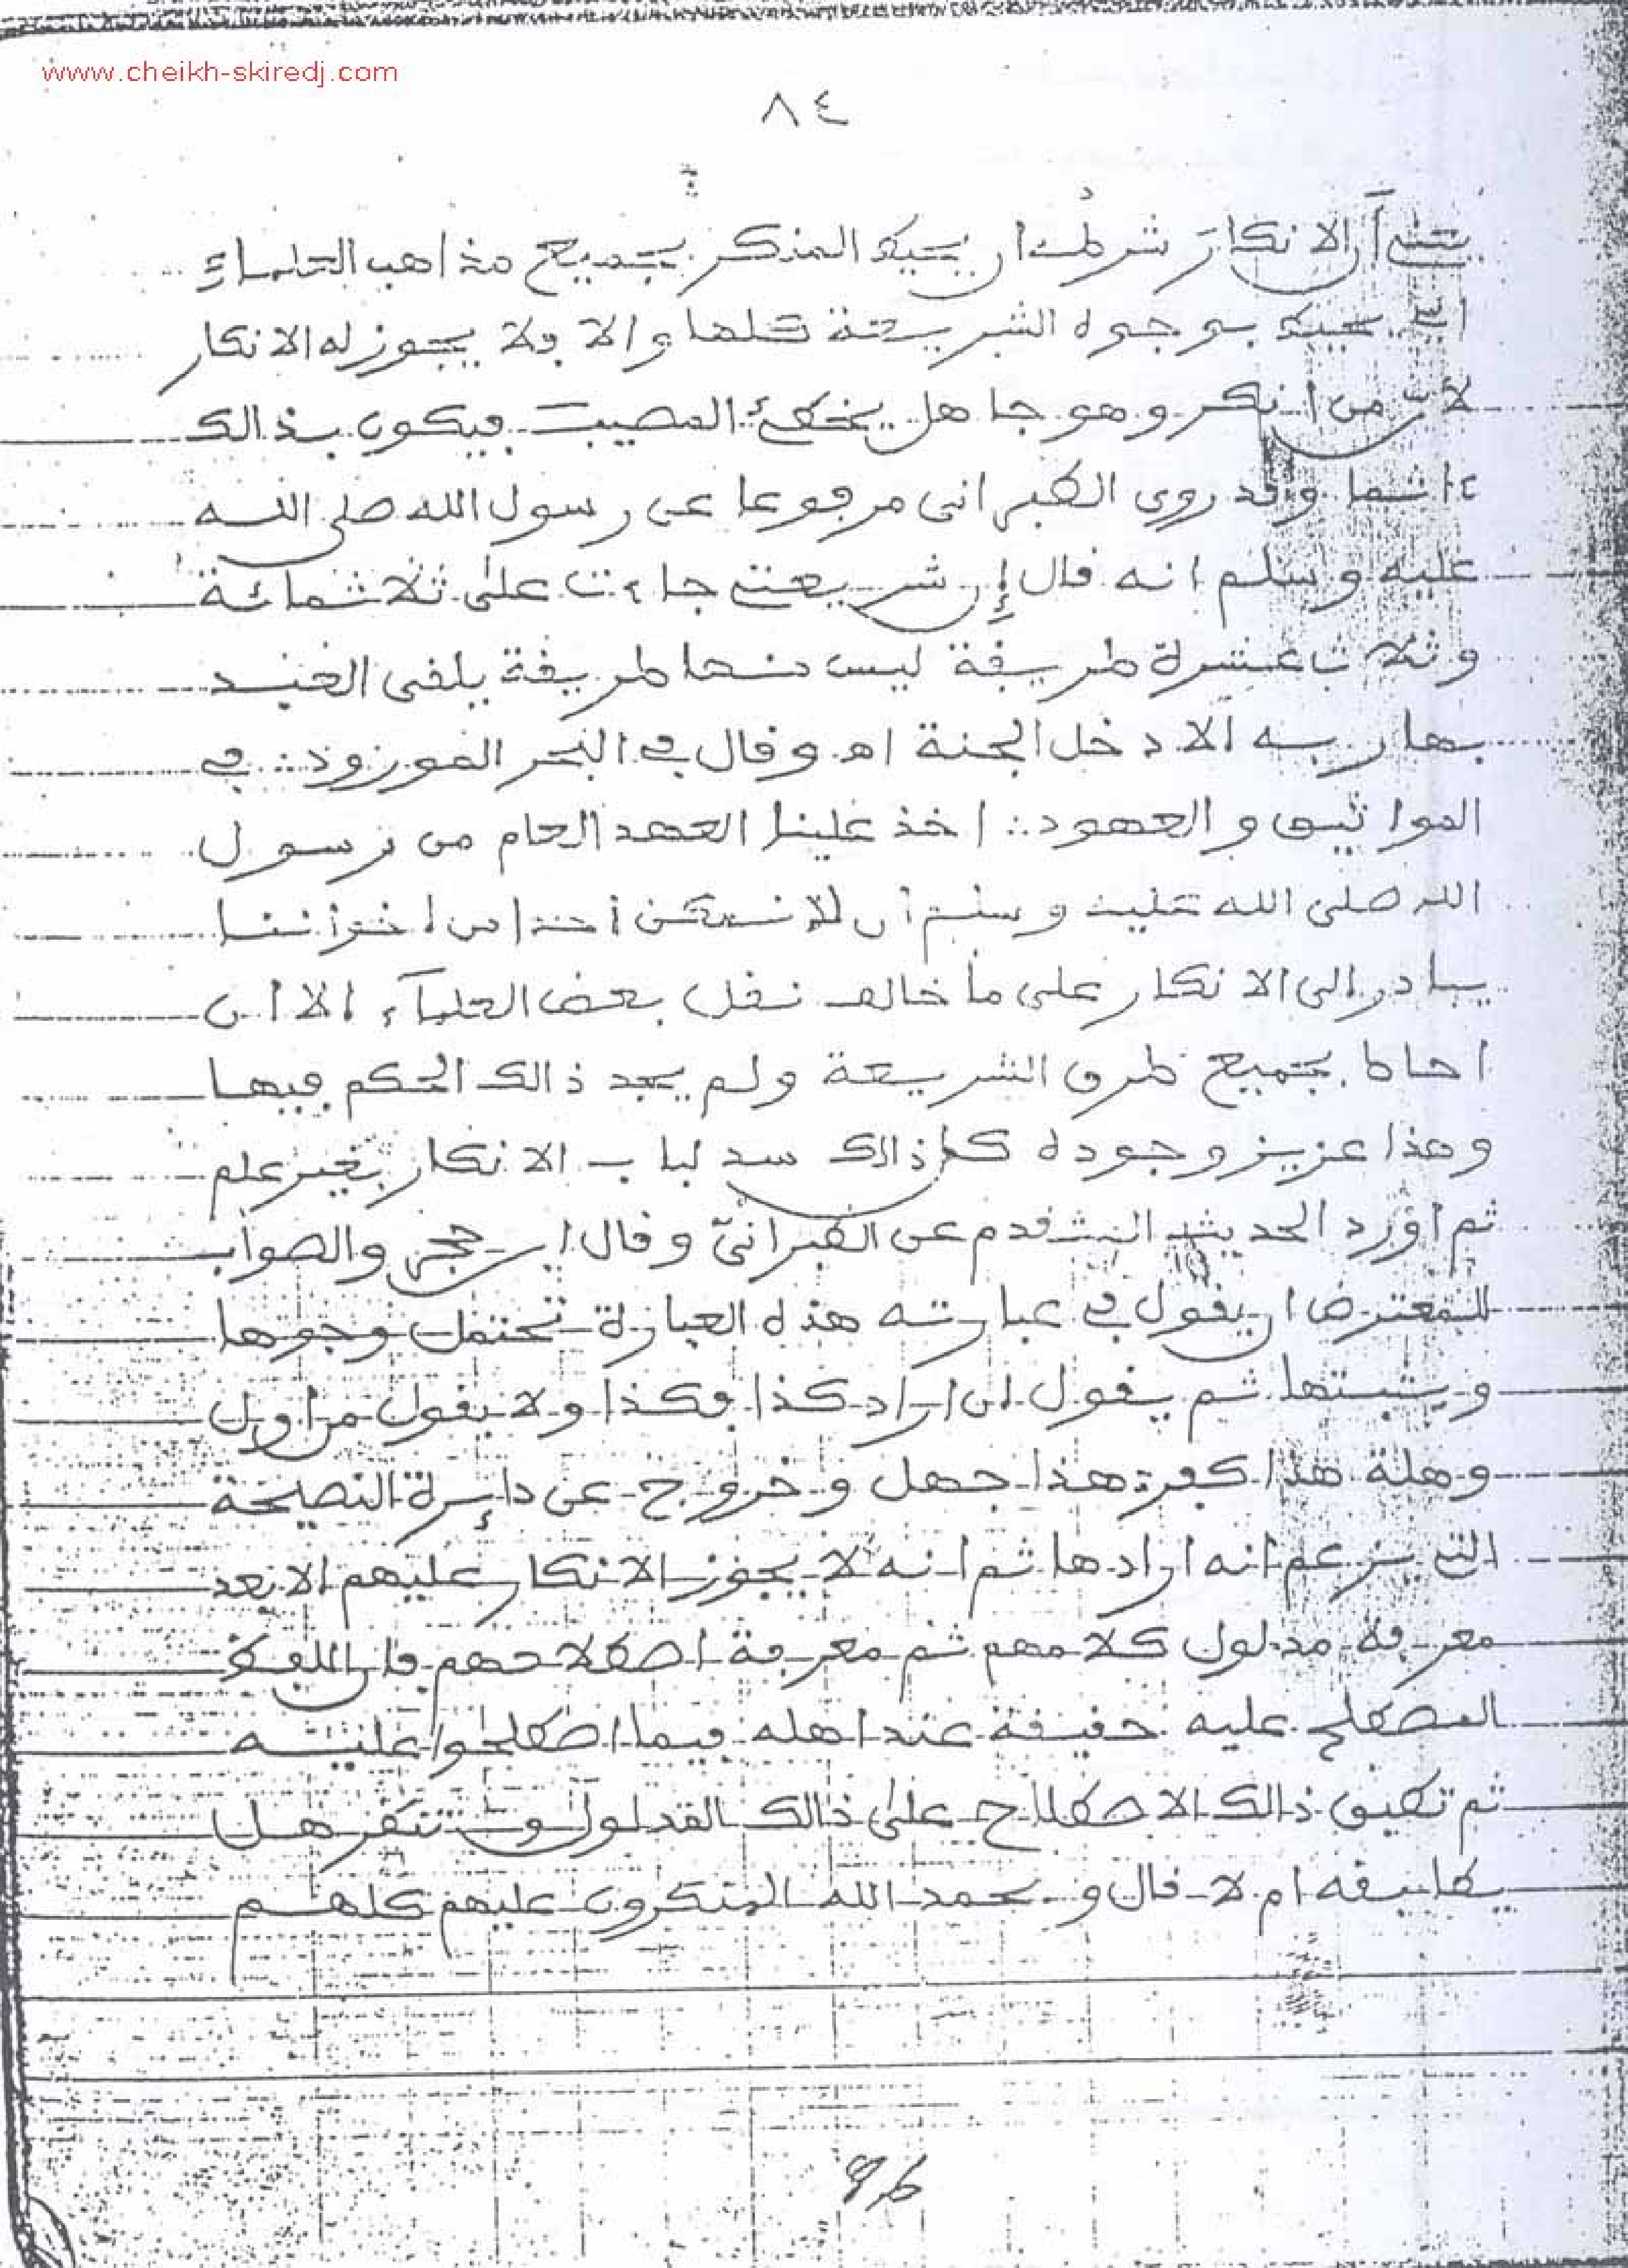 www.cheikh-skiredj.com
٨٤
أن الانكار شرطه ان يحيط المنكر بجميع مذاهب العلماء
اي يحيط بوجوه الشريعة كلها والا فلا يجوز له الانكار
لأن من انكر وهو جاهل يخطئ المصيب فيكون بذالك
ءاثما وقد روى الطبراني مرفوعا عن رسول الله صلى الله
عليه وسلم انه قال إن شريعتي جاءت على ثلاثمائة
وثلاث عشرة طريقة ليس منها طريقة يلقى العبد
بها ربه الا دخل الجنة اه وقال في البحر المورود في
المواثيق والعهود اخذ علينا العهد العام من رسول
الله صلى الله عليه وسلم أن لا نمكن أحدا من اخواننا
يبادر الى الانكار على ما خالف نقل بعض العلمآء الا ان
احاط بجميع طرق الشريعة ولم يجد ذالك الحكم فيها
وهذا عزيز وجوده كل ذالك سد لباب الانكار بغير علم
ثم أورد الحديث المتقدم عن الطبراني وقال ابن حجر والصواب
للمعترض ان يقول في عبارته هذه العبارة تحتمل وجوها
ويثبتها ثم يقول ان اراد كذا فكذا ولا يقول من اول
وهلة هذا كفر هذا جهل وخروج عن دائرة النصيحة
التي يزعم انه ارادها ثم انه لا يجوز الانكار عليهم الا بعد
معرفة مدلول كلامهم ثم معرفة اصطلاحهم فان اللفظ
المصطلح عليه حقيقة عند اهله فيما اصطلحوا عليه
ثم تطبيق ذالك الاصطلاح على ذالك المدلول وتنظر هل
يطابقه ام لا قال وبحمد الله المنكرون عليهم كلهم